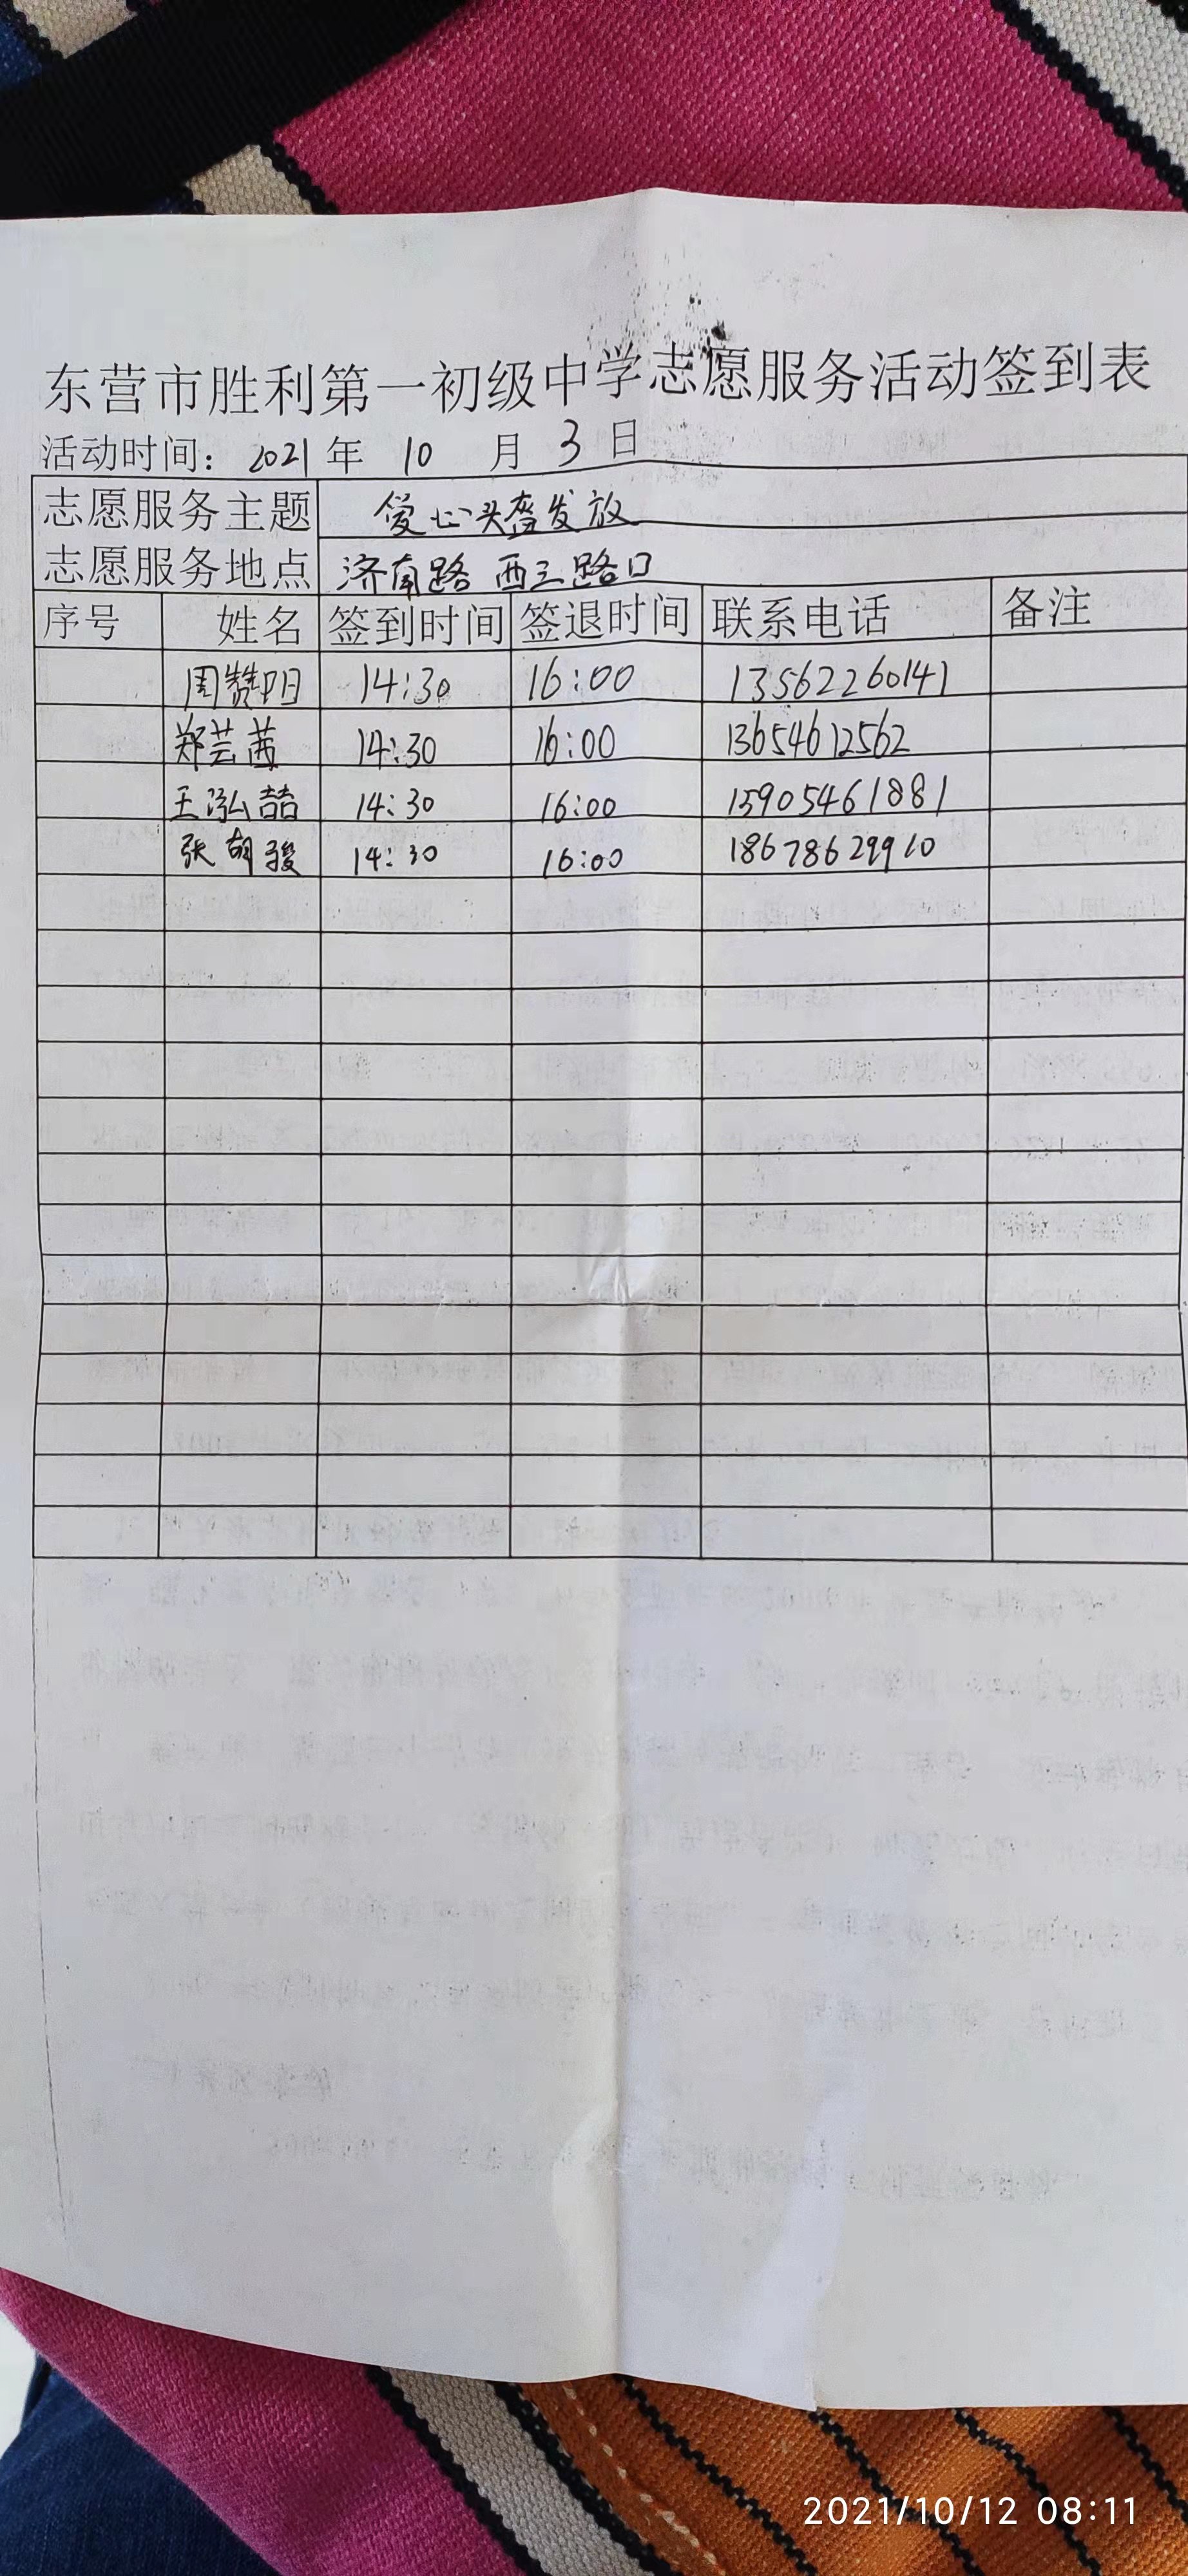 东营市胜利第一初级中学志愿服务活动签到表
活动时间：2021年 10 月 3 日
志愿服务主题 爱心头盔发放
志愿服务地点 济南路 西三路口
序号 姓名 签到时间 签退时间 联系电话 备注
周赞阳 14:30 16:00 13562260141
郑芸茜 14:30 16:00 13654612562
王泓喆 14:30 16:00 15905461881
张朝骏 14:30 16:00 18678629910
2021/10/12 08:11